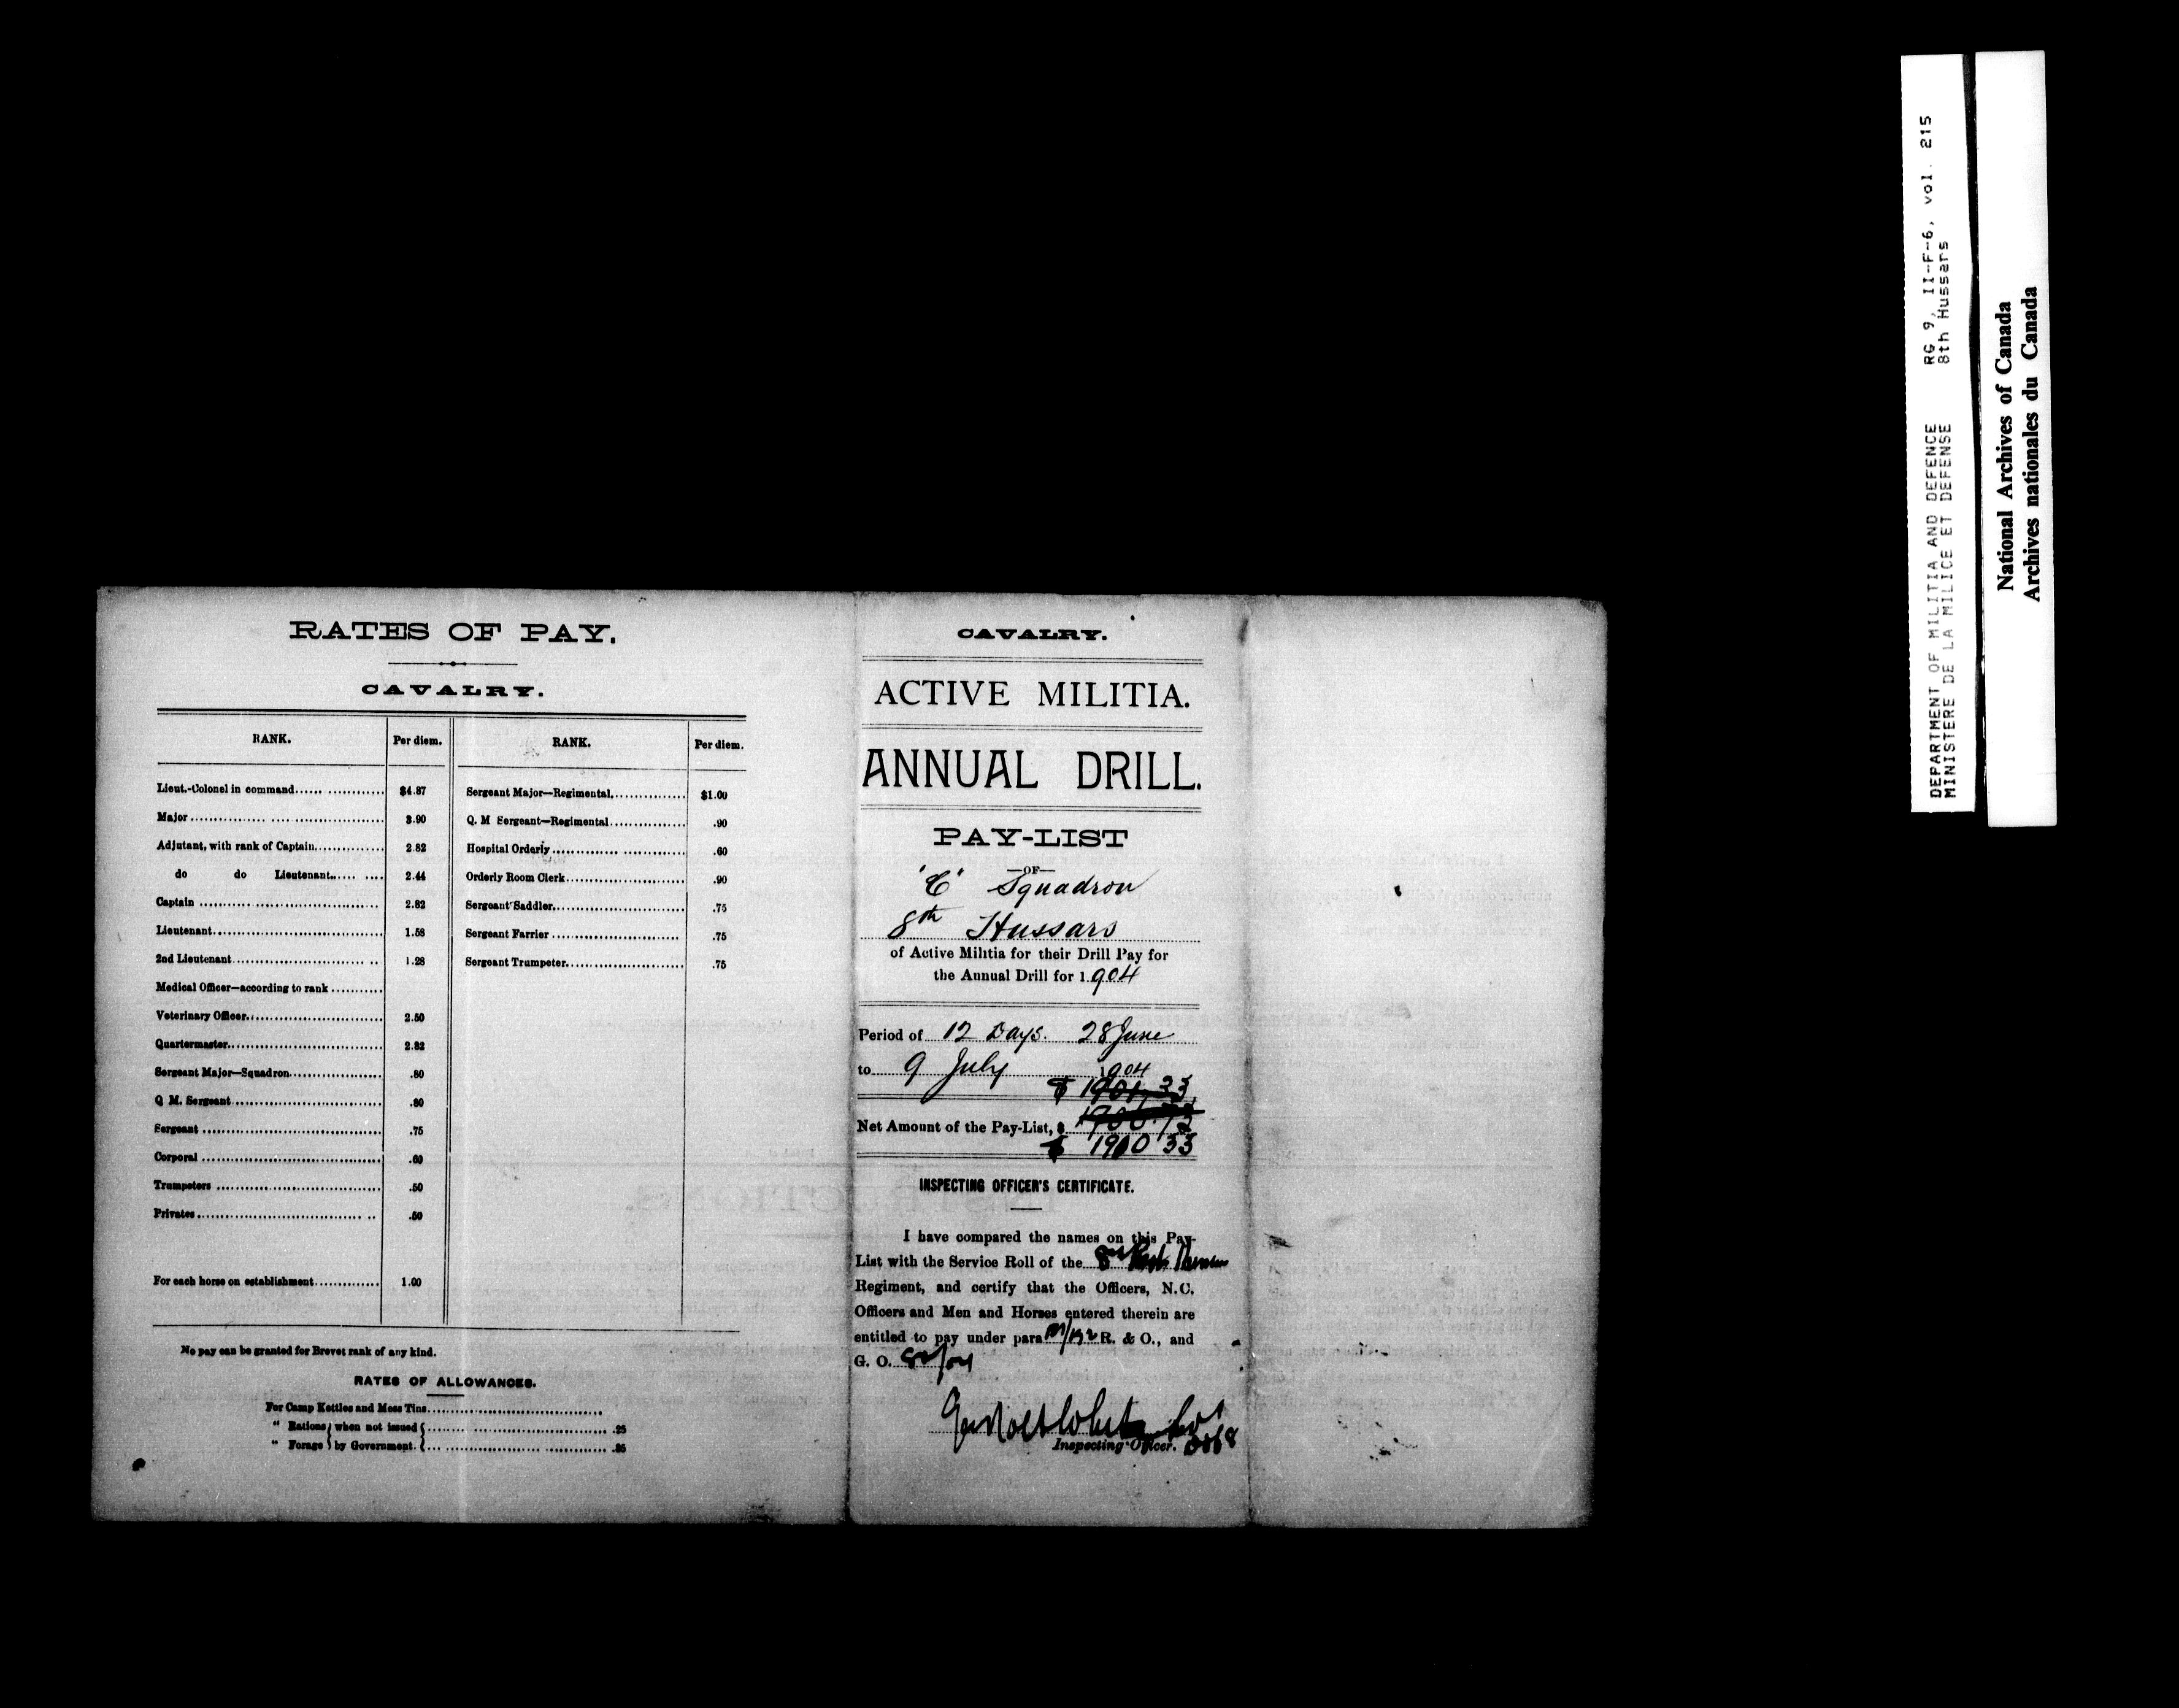 RATES OF PAY.
CAVALRY.
RANK. Per diem. RANK. Per diem.
Lieut.-Colonel in command $4.87 Sergeant Major—Regimental $1.00
Major 3.90 Q. M Sergeant—Regimental .90
Adjutant, with rank of Captain 2.82 Hospital Orderly .60
do do Lieutenant 2.44 Orderly Room Clerk .90
Captain 2.82 Sergeant Saddler .75
Lieutenant 1.58 Sergeant Farrier .75
2nd Lieutenant 1.28 Sergeant Trumpeter .75
Medical Officer—according to rank
Veterinary Officer 2.50
Quartermaster 2.82
Sergeant Major—Squadron .80
Q M. Sergeant .80
Sergeant .75
Corporal .60
Trumpeters .50
Privates .50
For each horse on establishment 1.00
No pay can be granted for Brevet rank of any kind.
RATES OF ALLOWANCES.
For Camp Kettles and Mess Tins
" Rations } when not issued { .25
" Forage } by Government. { .35
CAVALRY.
ACTIVE MILITIA.
ANNUAL DRILL.
PAY-LIST
—OF—
'C' Squadron
8th Hussars
of Active Militia for their Drill Pay for
the Annual Drill for 1904
Period of 12 Days. 28 June
to 9 July 1904
$ 1901,33
Net Amount of the Pay-List, $
$ 1900 33
INSPECTING OFFICER'S CERTIFICATE.
I have compared the names on this Pay-
List with the Service Roll of the 8th
Regiment, and certify that the Officers, N.C.
Officers and Men and Horses entered therein are
entitled to pay under para R. & O., and
G. O.
Inspecting Officer.
DEPARTMENT OF MILITIA AND DEFENCE RG 9, II-F-6, vol. 215
MINISTERE DE LA MILICE ET DEFENSE 8th Hussars
National Archives of Canada
Archives nationales du Canada